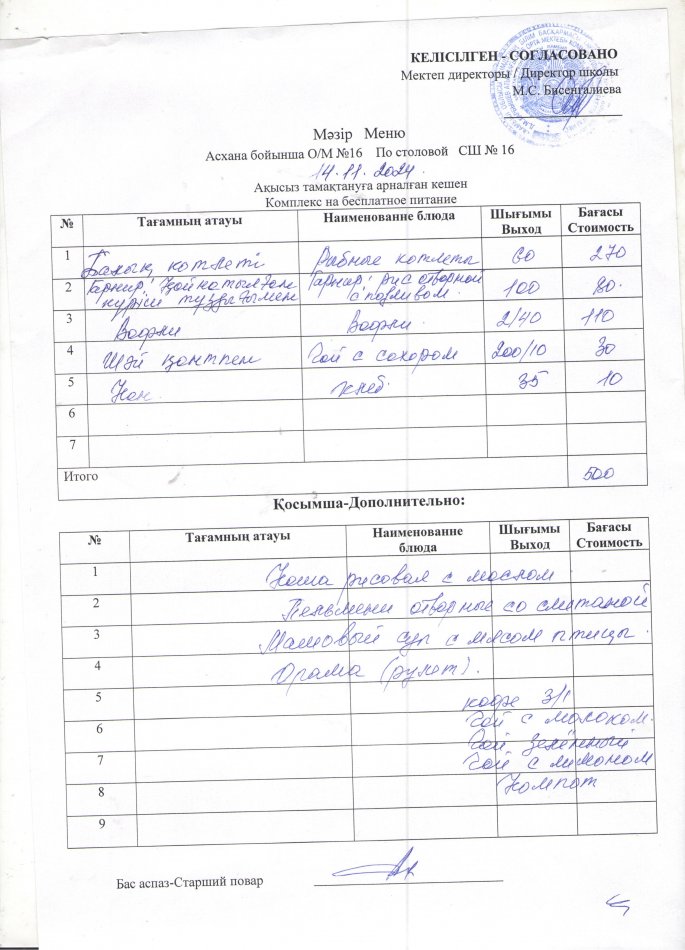 КЕЛІСІЛГЕН - СОГЛАСОВАНО
Мектеп директоры / Директор школы
М.С. Бисенгалиева
Мәзір Меню
Асхана бойынша О/М №16 По столовой СШ № 16
14.11.2024.
Ақысыз тамақтануға арналған кешен
Комплекс на бесплатное питание
№ Тағамның атауы Наименование блюда Шығымы Выход Бағасы Стоимость
1 Балық котлеті Рыбные котлеты 60 270
2 Гарнир: Қайнатылған күріш тұздығымен Гарнир: рис отварной с подливом. 100 80.
3 Вафли Вафли. 2/40 110
4 Шәй қантпен Чай с сахаром 200/10 30
5 Нан. хлеб. 35 10
6
7
Итого 500
Қосымша-Дополнительно:
№ Тағамның атауы Наименование блюда Шығымы Выход Бағасы Стоимость
1 Каша рисовая с маслом
2 Пельмени отварные со сметаной
3 Машовый суп с мясом птицы.
4 Орама (рулет).
5 кофе 3/1
6 Чай с молоком.
Чай зелённый
7 Чай с лимоном
8 Компот
9
Бас аспаз-Старший повар